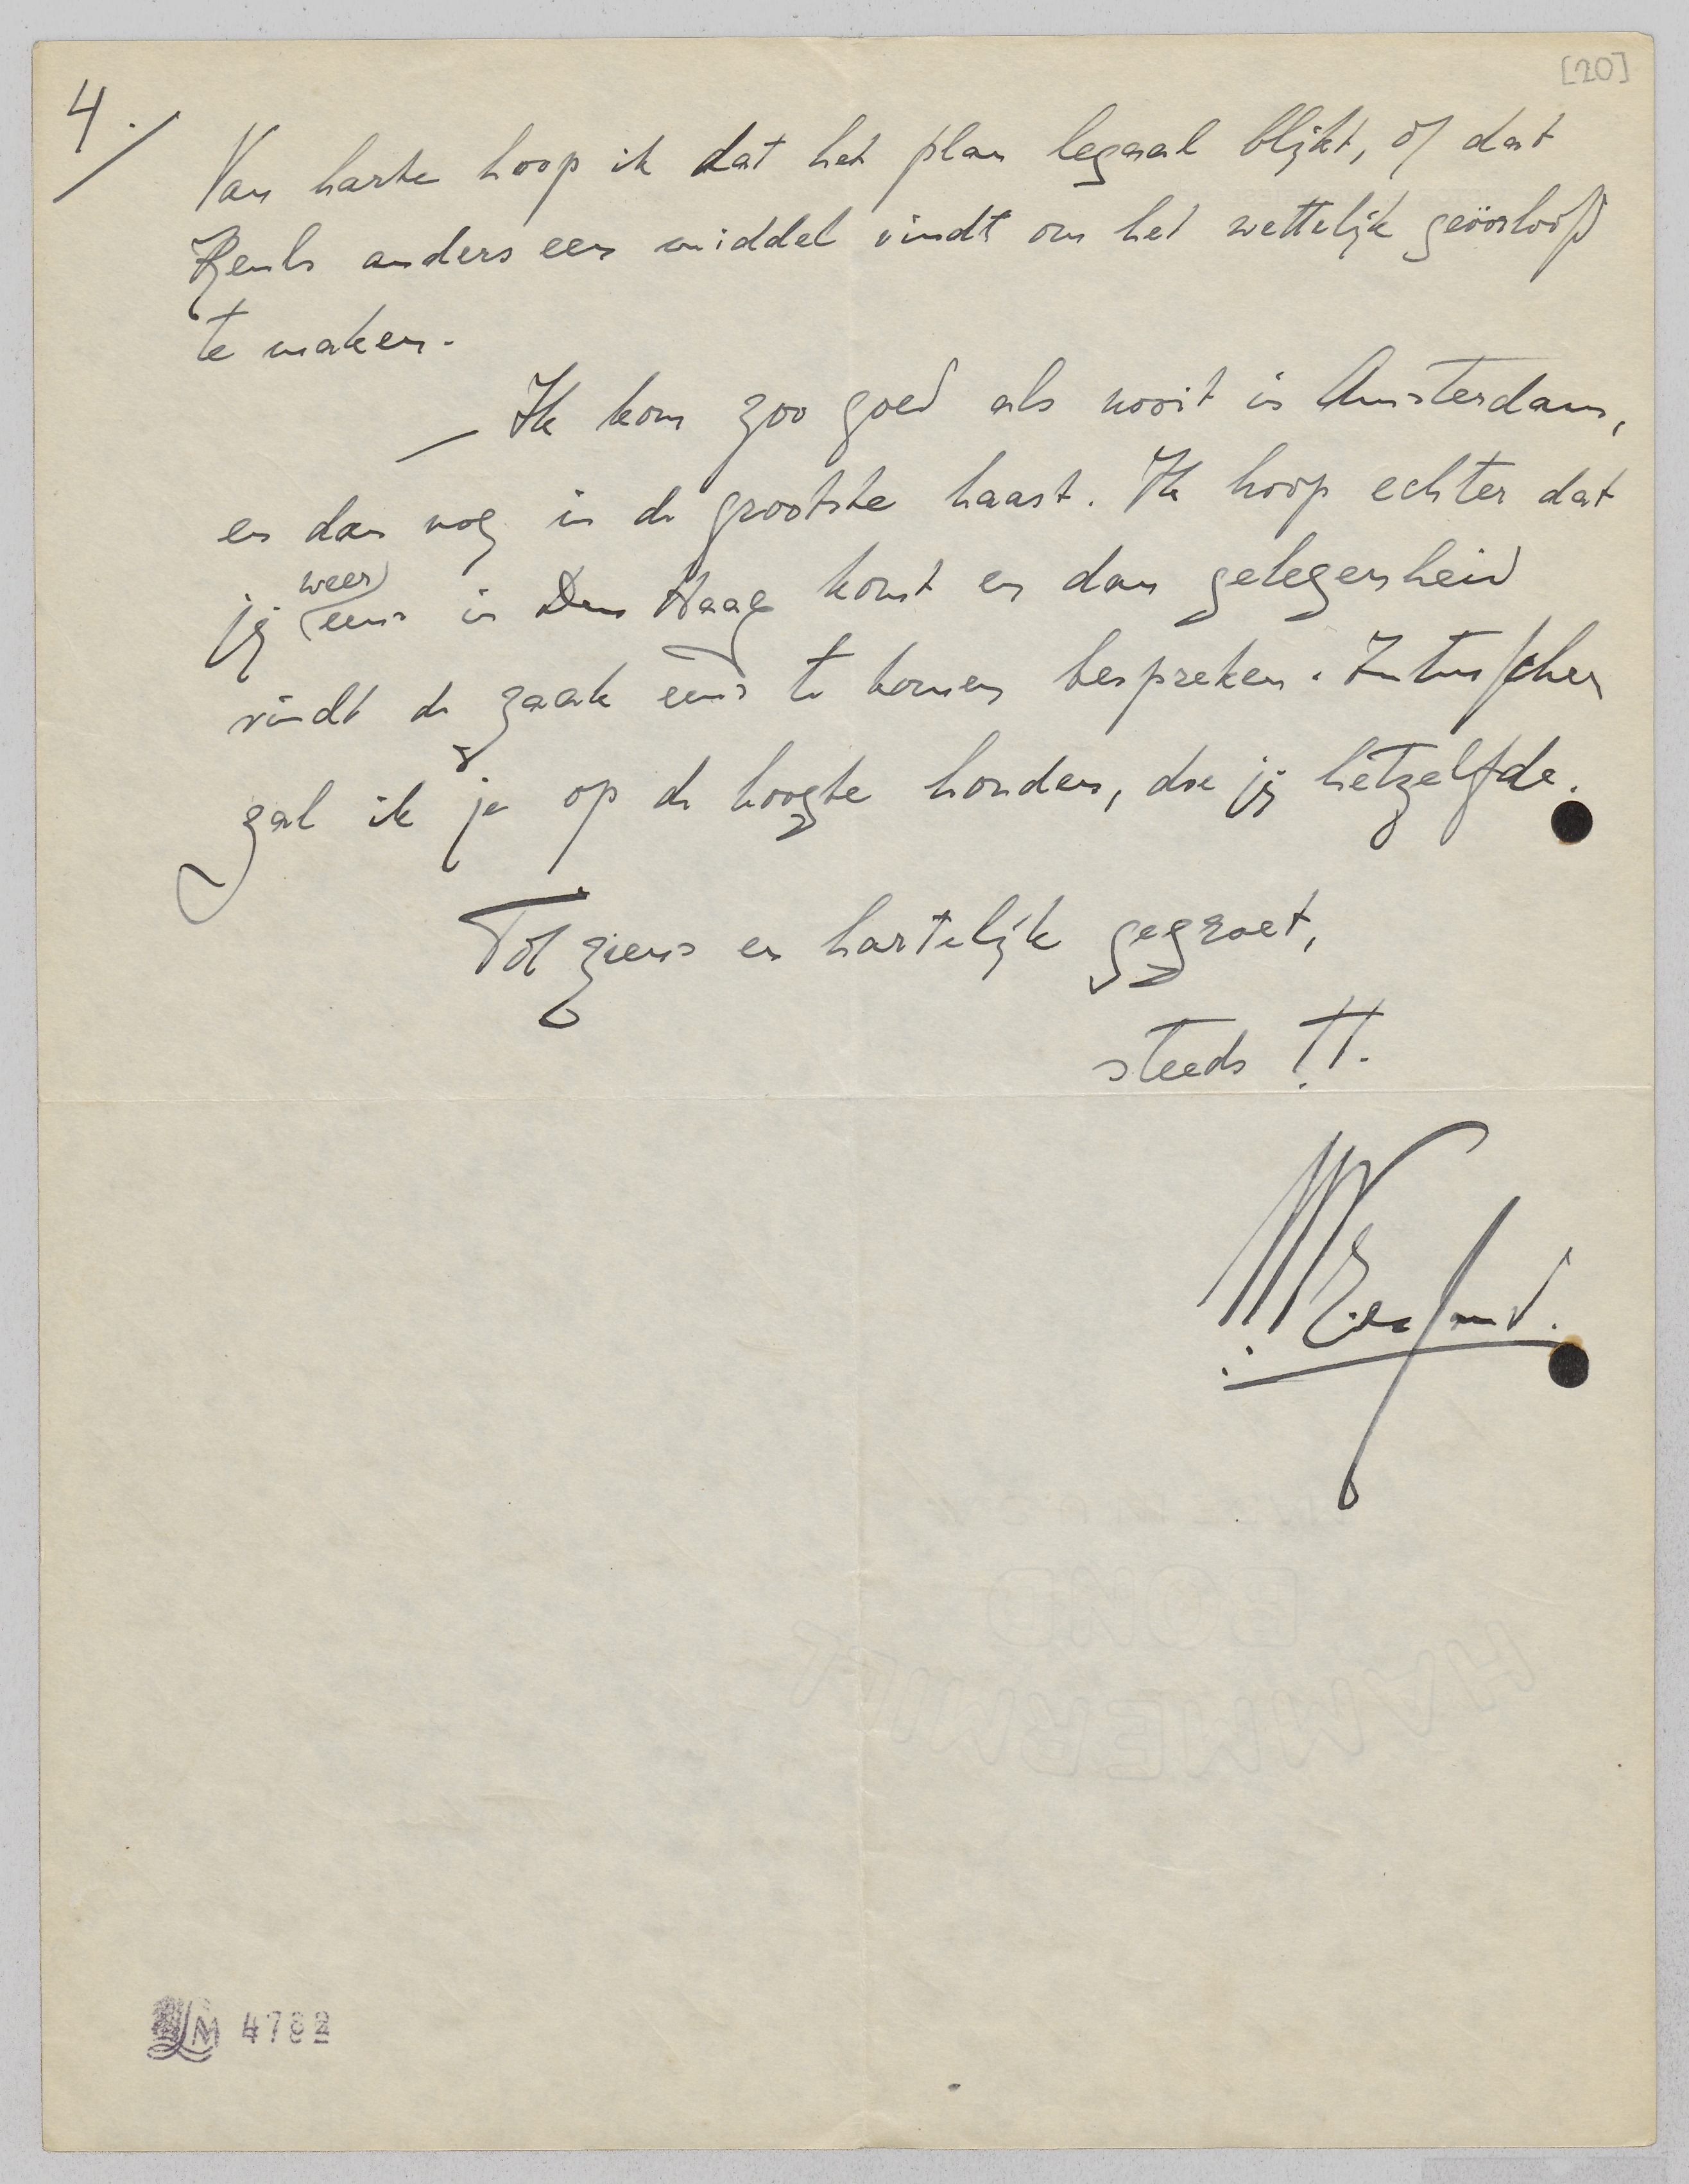 [20]
4./
Van harte hoop ik dat het plan legaal blijkt, òf dat
anders een middel vindt om het wettelijk geöorloofd
te maken.
— Ik kom zoo goed als nooit in Amsterdam,
en dan nog in de grootste haast. Ik hoop echter dat
weer
jij eens in Den Haag komt en dan gelegenheid
vindt de zaak eens te komen bespreken. Intusschen
zal ik je op de hoogte houden, doe jij hetzelfde.
Tot ziens en hartelijk gegroet,
steeds t.t.
HAMMERMILL
BOND
LM 4782